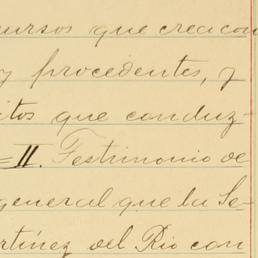 ursos que creacon
y procedentes, y
itos que conduz-
=II. Testimonio de
general que la Se-
artínez del Rio con